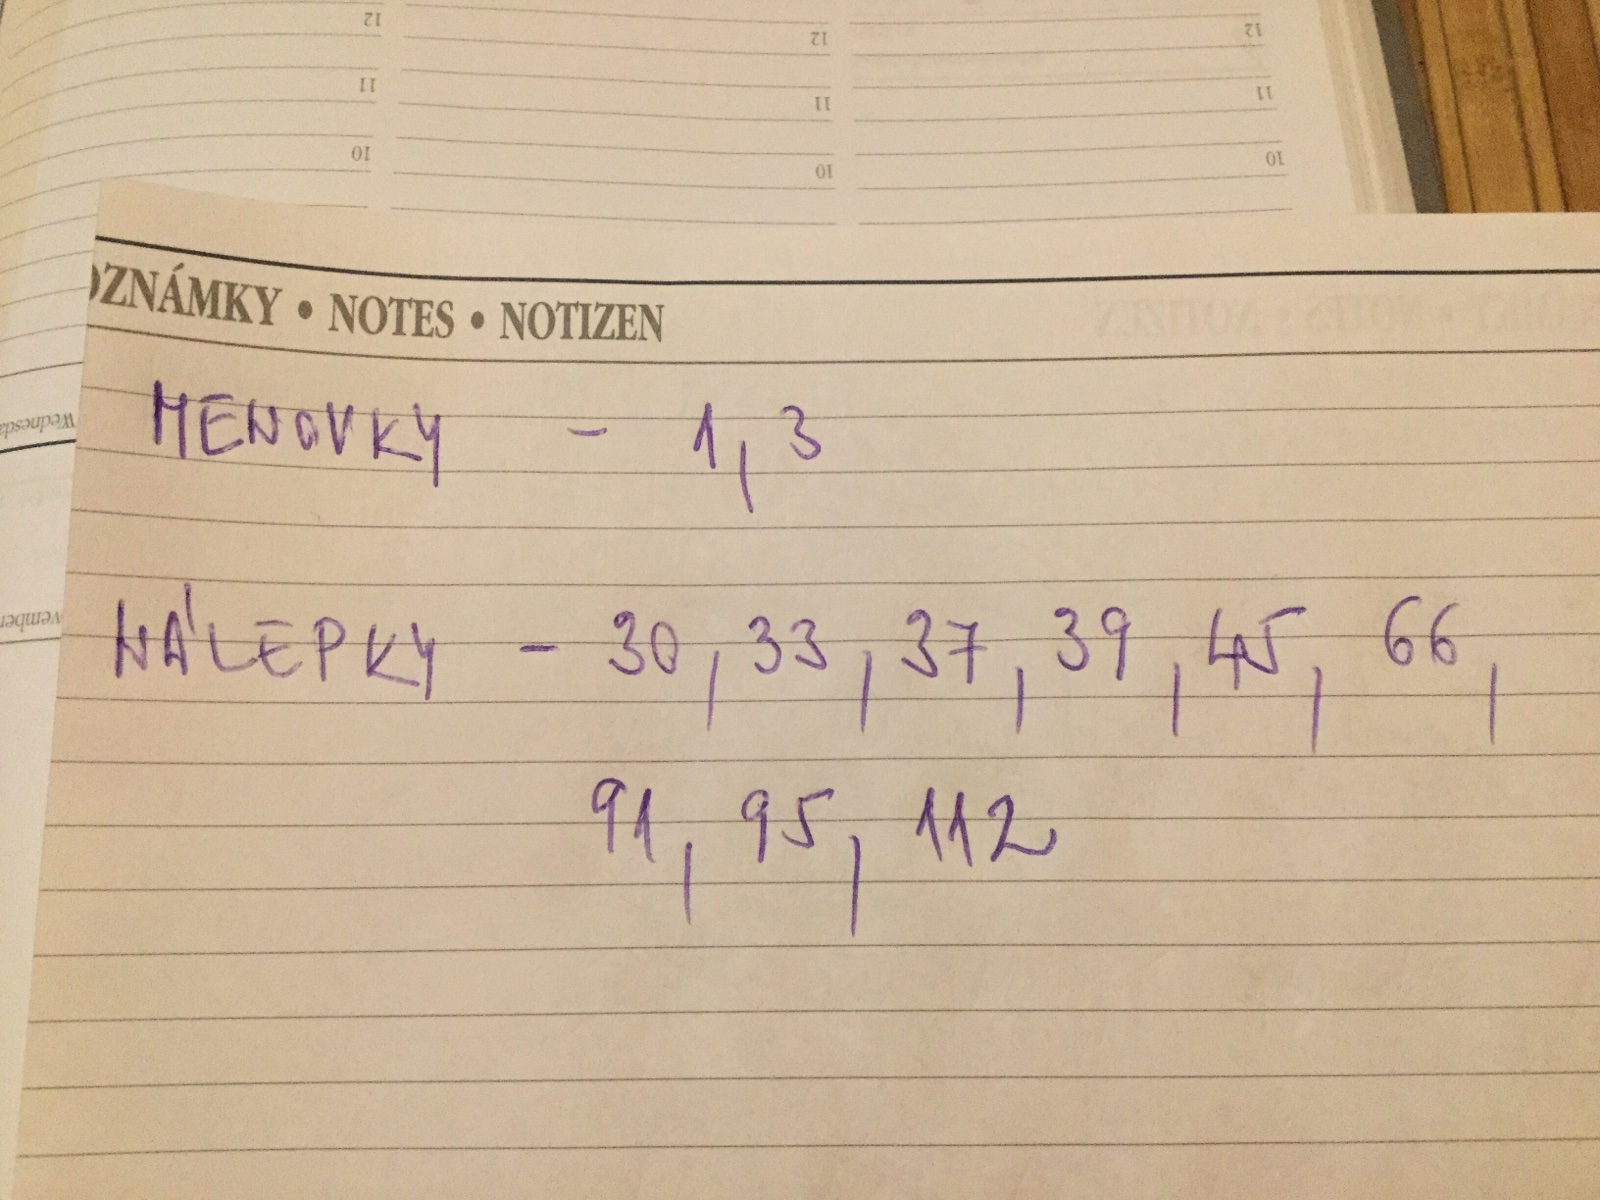 12 12 12
11 11 11
10 10 10
OZNÁMKY • NOTES • NOTIZEN
MENOVKY - 1, 3
NÁLEPKY - 30, 33, 37, 39, 45, 66,
91, 95, 112